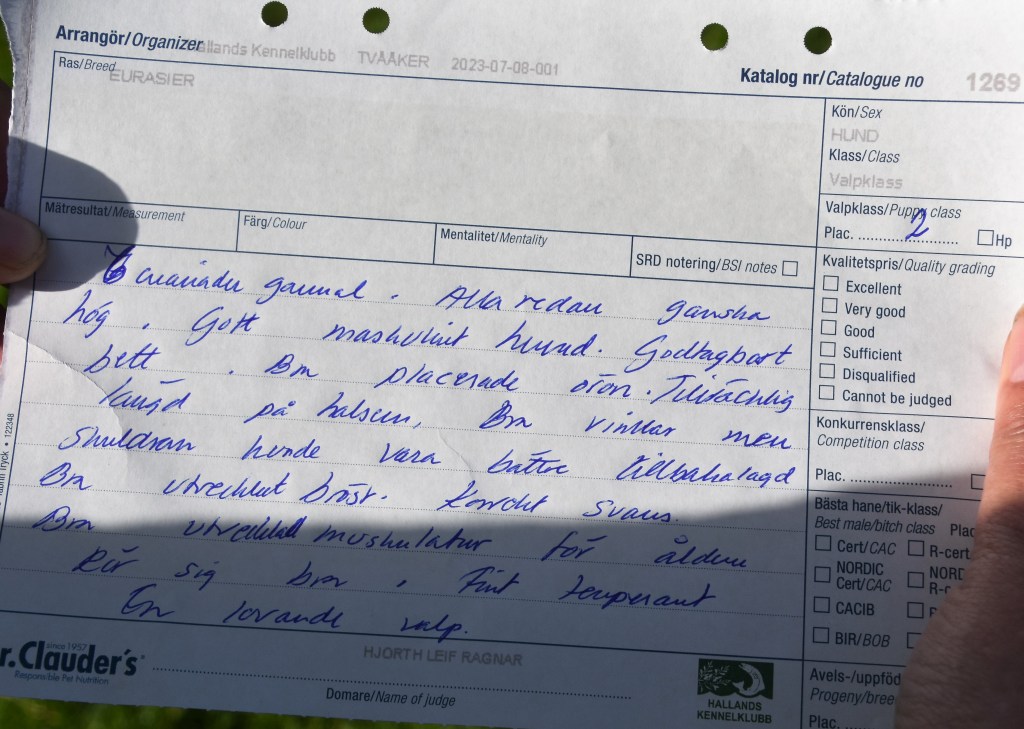 Arrangör/Organizer Hallands Kennelklubb TVÅÅKER 2023-07-08-001
Katalog nr/Catalogue no 1269
Ras/Breed EURASIER
Kön/Sex
HUND
Klass/Class
Valpklass
Valpklass/Puppy class
Plac. 2 Hp
Mätresultat/Measurement Färg/Colour Mentalitet/Mentality SRD notering/BSI notes
Kvalitetspris/Quality grading
Excellent
Very good
Good
Sufficient
Disqualified
Cannot be judged
Konkurrensklass/
Competition class
Plac.
Bästa hane/tik-klass/
Best male/bitch class Plac
Cert/CAC R-cert
NORDIC NORD
Cert/CAC R-c
CACIB
BIR/BOB
Avels-/uppföd
Progeny/bree
Plac.
6 månader gammal. Allaredan ganska
hög. Gott maskulint hund. Godtagbart
bett. Bra placerade öron. Tillräcklig
längd på halsen, Bra vinklar men
skuldran kunde vara bättre tillbakalagd
Bra utvecklat bröst. Korrekt svans.
Bra utvecklad muskulatur för åldern
Rör sig bra. Fint temperant
En lovande valp.
tryck • 122348
since 1957
r.Clauder's
Responsible Pet Nutrition
HJORTH LEIF RAGNAR
Domare/Name of judge
HALLANDS
KENNELKLUBB